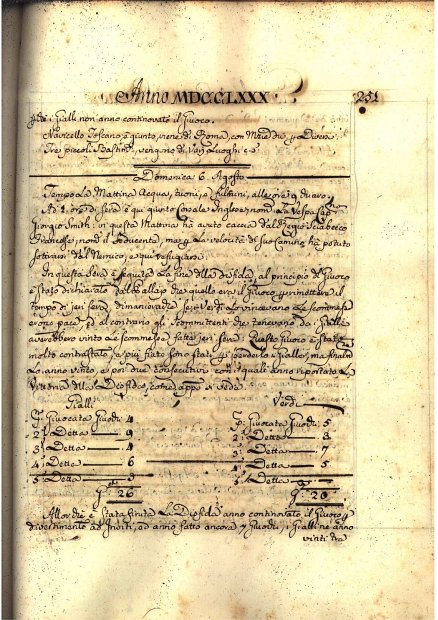 Anno MDCCLXXX 251
p. che i Gialli non anno continovato il Giuoco.
Marcello Toscano è giunto, viene di Roma, con
Tre piccoli Bastim.ti vengono di Varj Luoghi
Domenica 6. Agosto
Tempo La Mattina Acqua, tuoni, e fulmini, alle ore 9
Ad 1. ore di sera è qui giunto Corsale Inglese, nom. La Vespa Cap.
Giorgio Smith: in questa Mattina ha avuto caccia dal Regio Sciabecco
Francese, nom. il Seducenta, ma p. La velocità di suo Camino, ha potuto
sottrarsi dal Nemico, e qui refugiarsi.
In questa Sera è seguita La fine della disfida, al principio del Giuoco
è stato dichiarato dal che quello era il Giuoco p. rimettere il
tempo di jeri sera, di maniera che se i Verdi Lo vincevano Le scommesse
erono pace, ed al contrario gli scommittenti che tenevano da Gialli
averebbero vinto Le scommesse fatte jeri sera. Questo Giuoco è stato
molto contrastato, e più fiato sono stati p. perderlo i Gialli, ma finalm.
Lo anno vinto, e poi due consecutivi con i quali anno riportato La
Vittoria della Disfida, come app.o si vede.
Gialli Verdi
P. Giuocata Giuochi 4 P. Giuocata Giuochi 5
2. Detta 9 2. Detta 3
3. Detta 4 3. Detta 7
4. Detta 6 4. Detta 5
5. Detta 3 5. Detta
G. 26 G. 20
Allorche è stata finita La Disfida anno continovato il Giuoco p.
divertimento ad Inviti, ed anno fatto ancora 7 Giuochi, i Gialli ne anno
vinti tre